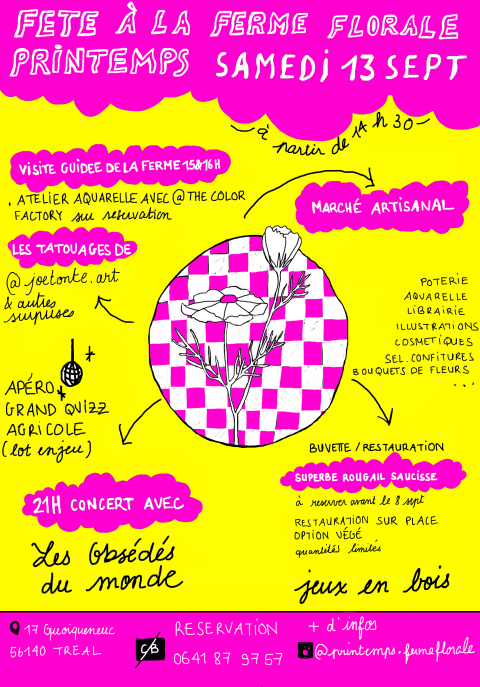 FETE À LA FERME FLORALE
PRINTEMPS SAMEDI 13 SEPT
à partir de 14 h 30
VISITE GUIDEE DE LA FERME 15&16H
. ATELIER AQUARELLE AVEC @THE COLOR
FACTORY sur reservation
MARCHÉ ARTISANAL
LES TATOUAGES DE
@joetonte.art
& autres
surprises
POTERIE
AQUARELLE
LIBRAIRIE
ILLUSTRATIONS
COSMETIQUES
SEL. CONFITURES
BOUQUETS DE FLEURS
...
APÉRO
GRAND QUIZZ
AGRICOLE
(lot enjeu)
BUVETTE / RESTAURATION
SUPERBE ROUGAIL SAUCISSE
à reserver avant le 8 sept
RESTAURATION SUR PLACE
OPTION VÉGÉ
quantités limités
21H CONCERT AVEC
Les Obsédés
du monde
jeux en bois
17 Quoiqueneuc
56140 TREAL
CB
RESERVATION
0641 87 97 57
+ d'infos
@printemps.fermeflorale